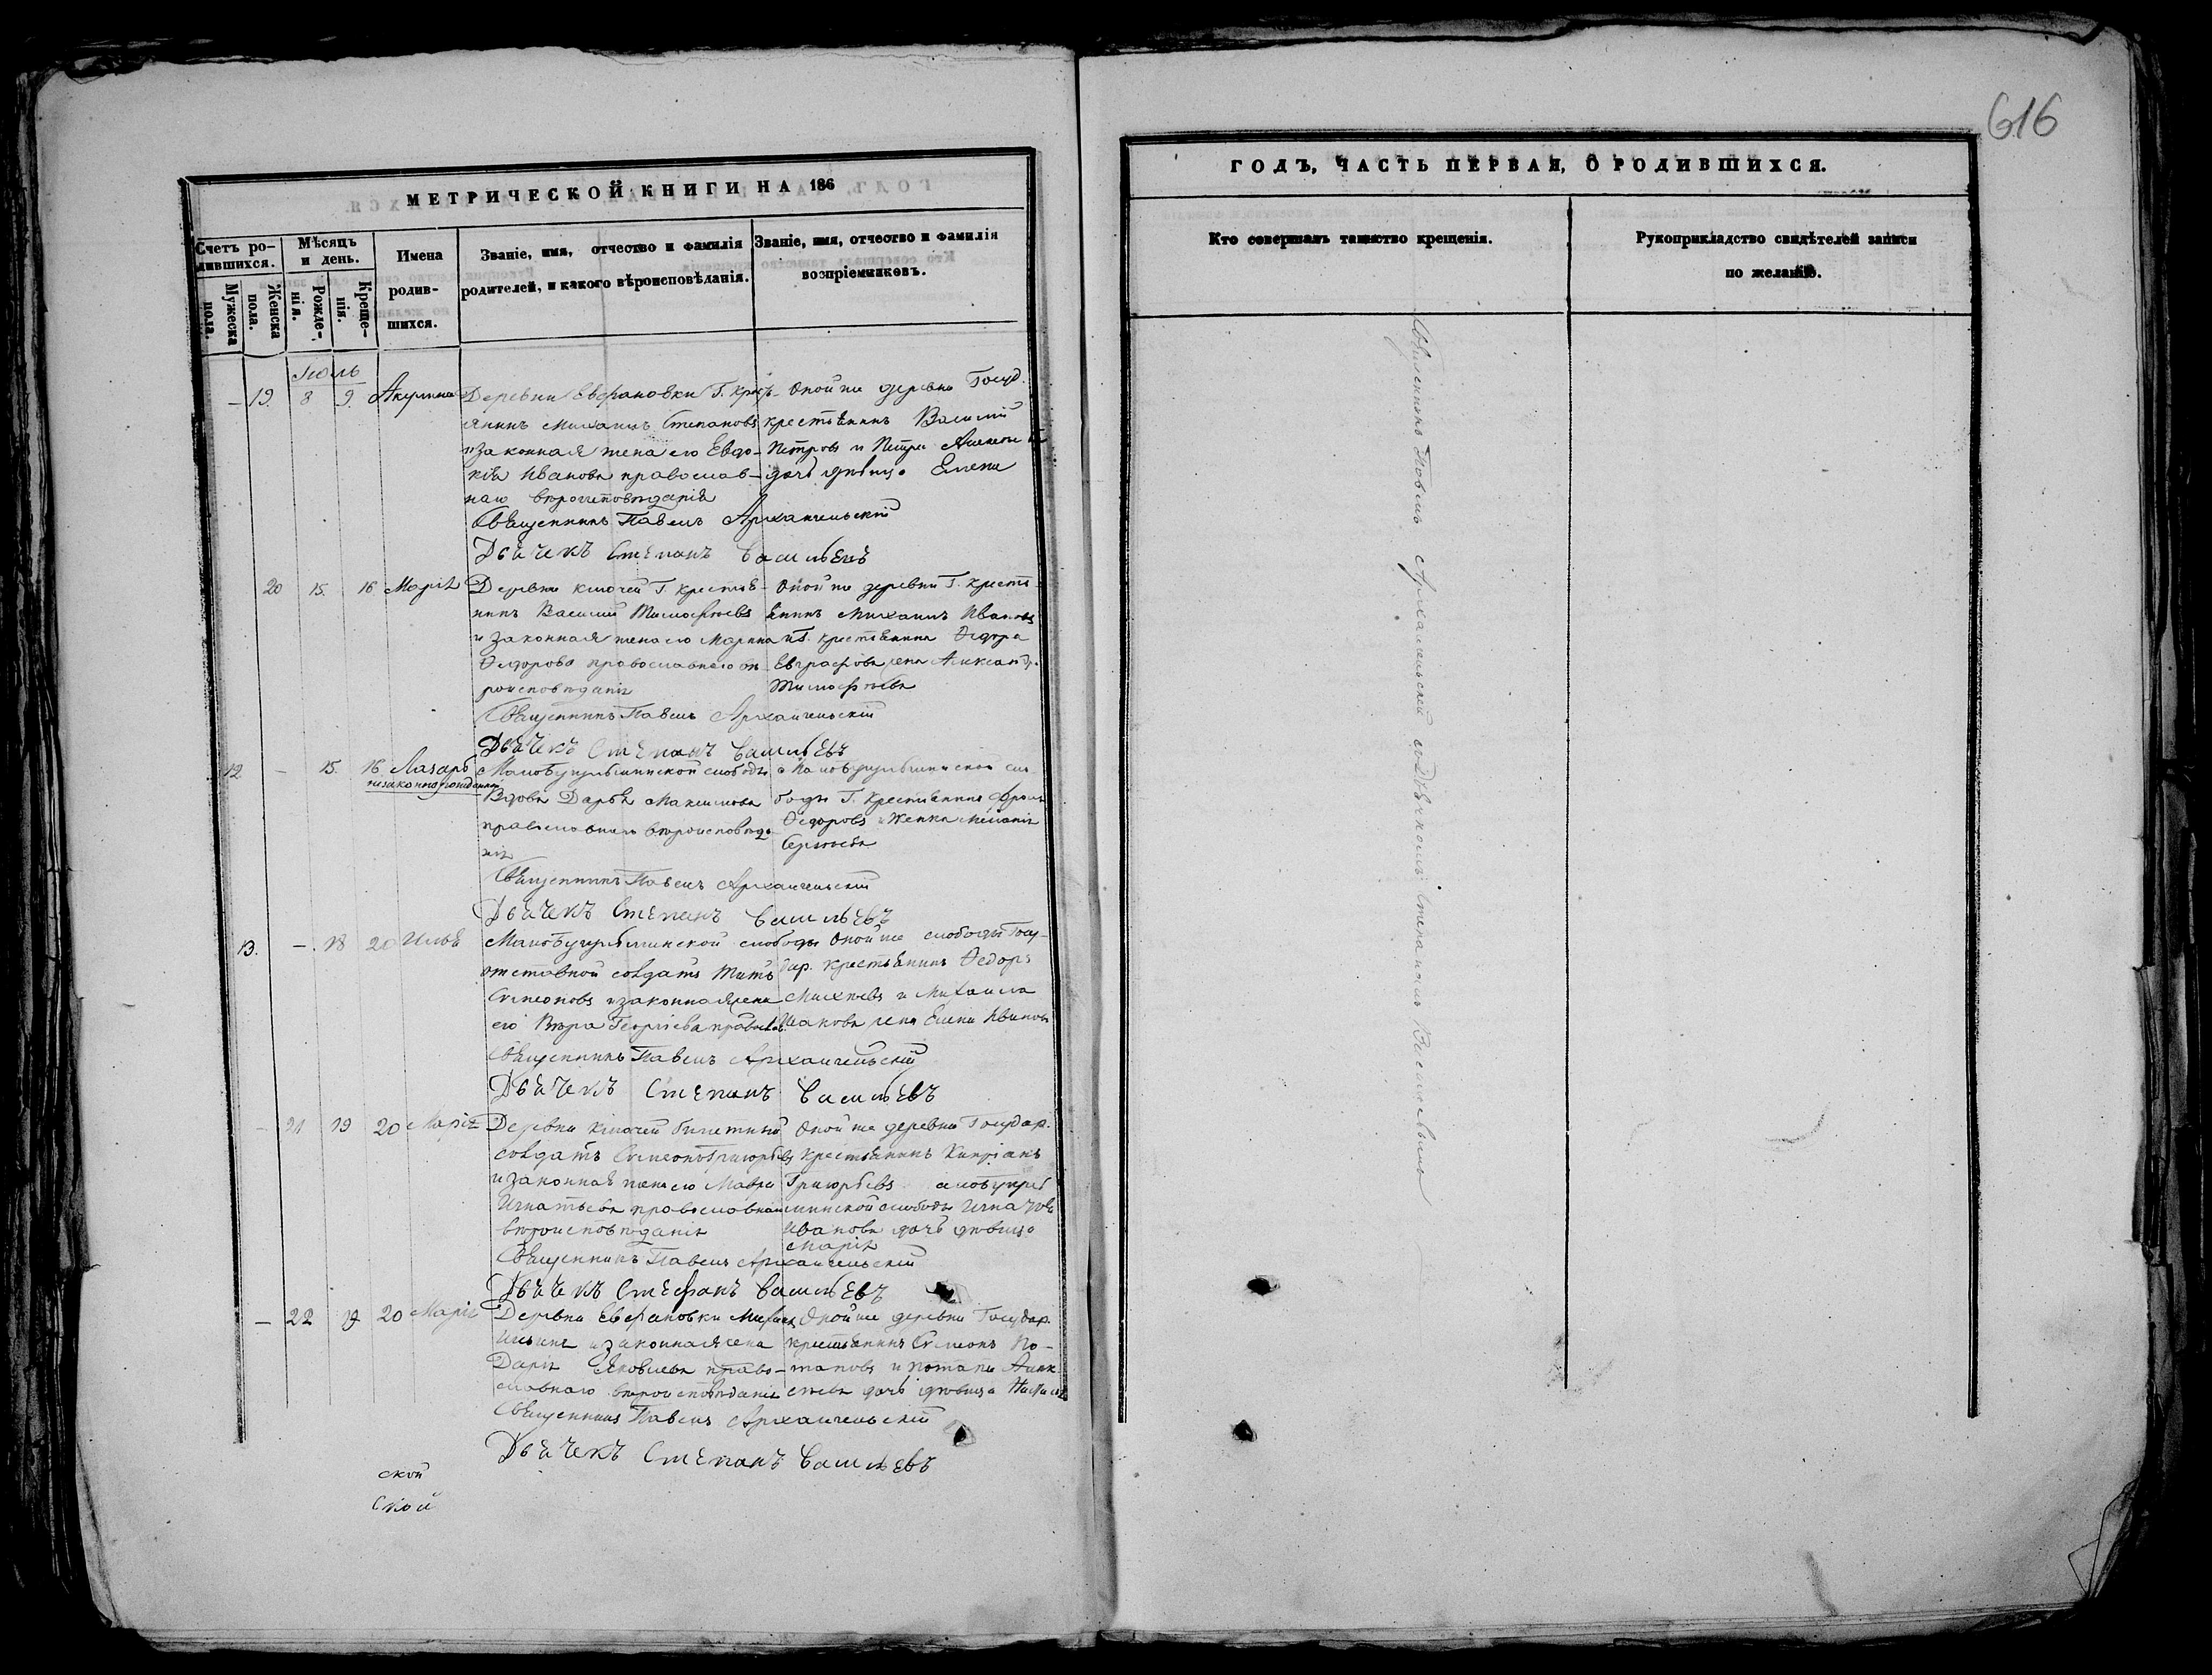 616
МЕТРИЧЕСКОЙ КНИГИ НА 186
ГОДЪ, ЧАСТЬ ПЕРВАЯ, О РОДИВШИХСЯ.
Счетъ ро-
дившихся.
Мужеска
пола.
Женска
пола.
Мѣсяцъ
и день.
Рожде-
нія.
Креще-
нія.
Имена
родив-
шихся.
Званіе, имя, отчество и фамилія
родителей, и какого вѣроисповѣданія.
Званіе, имя, отчество и фамилія
воспріемниковъ.
Кто совершалъ таинство крещенія.
Рукоприкладство свидѣтелей записи
по желанію.
Іюль
— 19. 8 9. Акулина
Деревни Еверановки Г. крест-
янинъ Михаилъ Степановъ
и законная жена его Евдо-
кія Иванова православ-
наго вѣроисповѣданія
Оной же деревни Госуд.
крестьянинъ Василій
Петровъ и Петра
дочь дѣвица Елена
Священникъ Павелъ Архангельскій
Дьячекъ Степанъ Васильевъ
20 15. 16 Марія
Деревни Ключей Г. крестья-
нинъ Василій Тимофѣевъ
и законная жена его Марина
Ѳедорова православнаго вѣ-
роисповѣданія
Оной же деревни Г. кресть-
янинъ Михаилъ Ивановъ
и Г. крестьянина Ѳедора
Евграфова жена Александра
Тимофѣева
Священникъ Павелъ Архангельскій
Дьячекъ Степанъ Васильевъ
12 — 15. 16 Лазарь
незаконнорожденный
слободы
Вдова Дарья Максимова
православнаго вѣроисповѣда
нія
сло
боды Г. крестьянинъ Фролъ
Ѳедоровъ и Женка Меланія
Сергѣева
Священникъ Павелъ Архангельскій
Дьячекъ Степанъ Васильевъ
13. — 18 20 Илья
слободы
отставной солдатъ Титъ
Симеоновъ и законная жена
его Вѣра Георгіева правосл.
Оной же слободы Госу-
дар. крестьянинъ Ѳедоръ
и Михаила
жена Елена Иванова
Священникъ Павелъ Архангельскій
Дьячекъ Степанъ Васильевъ
— 21 19 20 Марія
Деревни Ключей билетный
солдатъ Симеонъ Григорьевъ
и законная жена его Мавра
Игнатьева православнаго
вѣроисповѣданія
Оной же деревни Государ.
крестьянинъ Кипріанъ
Григорьевъ
слободы Игнатія
Иванова дочь дѣвица
Марія
Священникъ Павелъ Архангельскій
Дьячекъ Стефанъ Васильевъ
— 22 19 20 Марія
Деревни Еверановки
Ильинъ и законная жена
Дарія Яковлева право-
славнаго вѣроисповѣданія
Оной же деревни Государ.
крестьянинъ Симеонъ По-
таповъ и Потапа Алек-
сѣева дочь дѣвица
Священникъ Павелъ Архангельскій
Дьячекъ Степанъ Васильевъ
ской
ской
Священникъ Павелъ Архангельскій съ Дьячкомъ Степаномъ Васильевымъ